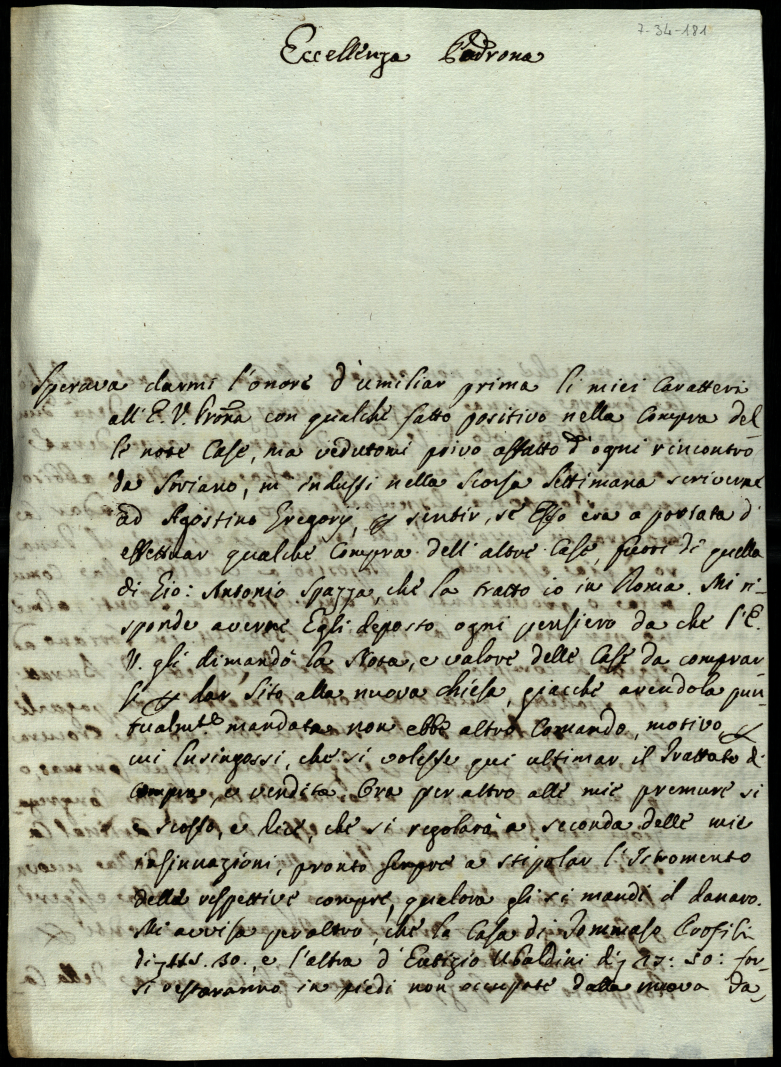 7-34-181
Eccellenza Padrona
Sperava darmi l'onore d'umiliar prima li miei Caratteri
all'E. V. Prona con qualche fatto positivo nella Compra del-
le note Case, ma vedutomi privo affatto d'ogni rincontro
da Soriano, m'indussi nella scorsa Settimana scriverne
ad Agostino Gregorj, p sentir, se Esso era a portata d'
effettuar qualche Compra dell'altre Case, fuori di quella
di Gio: Antonio Spazza, che la tratto io in Roma. Mi ri-
sponde averne Egli deposto ogni pensiero da che l'E.
V. gli dimandò la Nota, e valore delle Case da comprar-
si p dar Sito alla nuova chiesa, giacchè avendola pun-
tualmte mandata non ebbe altro Comando, motivo, p
cui lusingossi, che si volesse qui ultimar il Trattato di
compra, e vendita. Ora per altro alle mie premure si
è scosso, e dice, che si regolarà a seconda delle mie
insinuazioni, pronto sempre a stipolar l'Istromento
delle respettive compre, qualora gli si mandi il danaro.
Mi avvisa peraltro, che la Casa di Tommaso
di 30., e l'altra d'Eutizio Ubaldini di 50: for-
si restaranno in piedi non occupate dalla nuova